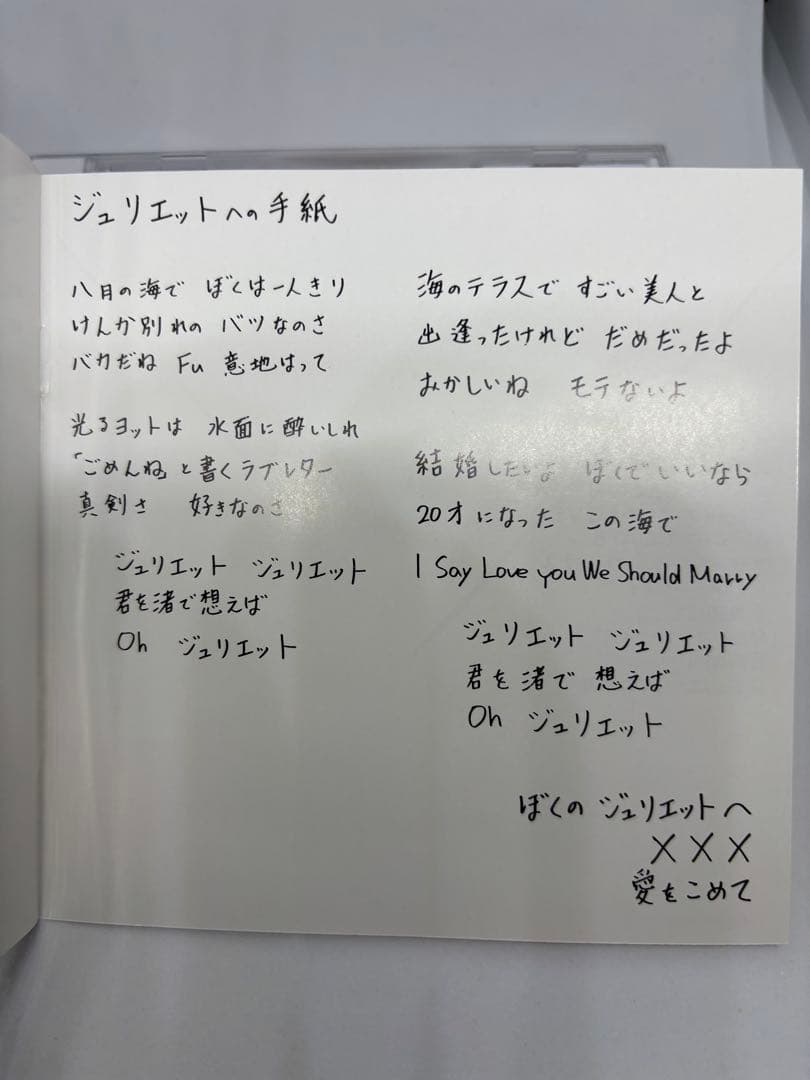 ジュリエットへの手紙
八月の海で ぼくは一人きり
けんか別れの バツなのさ
バカだね Fu 意地はって
光るヨットは 水面に酔いしれ
「ごめんね」と書くラブレター
真剣さ 好きなのさ
ジュリエット ジュリエット
君を渚で想えば
Oh ジュリエット
海のテラスで すごい美人と
出逢ったけれど だめだったよ
おかしいね モテないよ
結婚したいよ ぼくでいいなら
20才になった この海で
I Say Love you We Should Marry
ジュリエット ジュリエット
君を渚で 想えば
Oh ジュリエット
ぼくの ジュリエットへ
X X X
愛をこめて